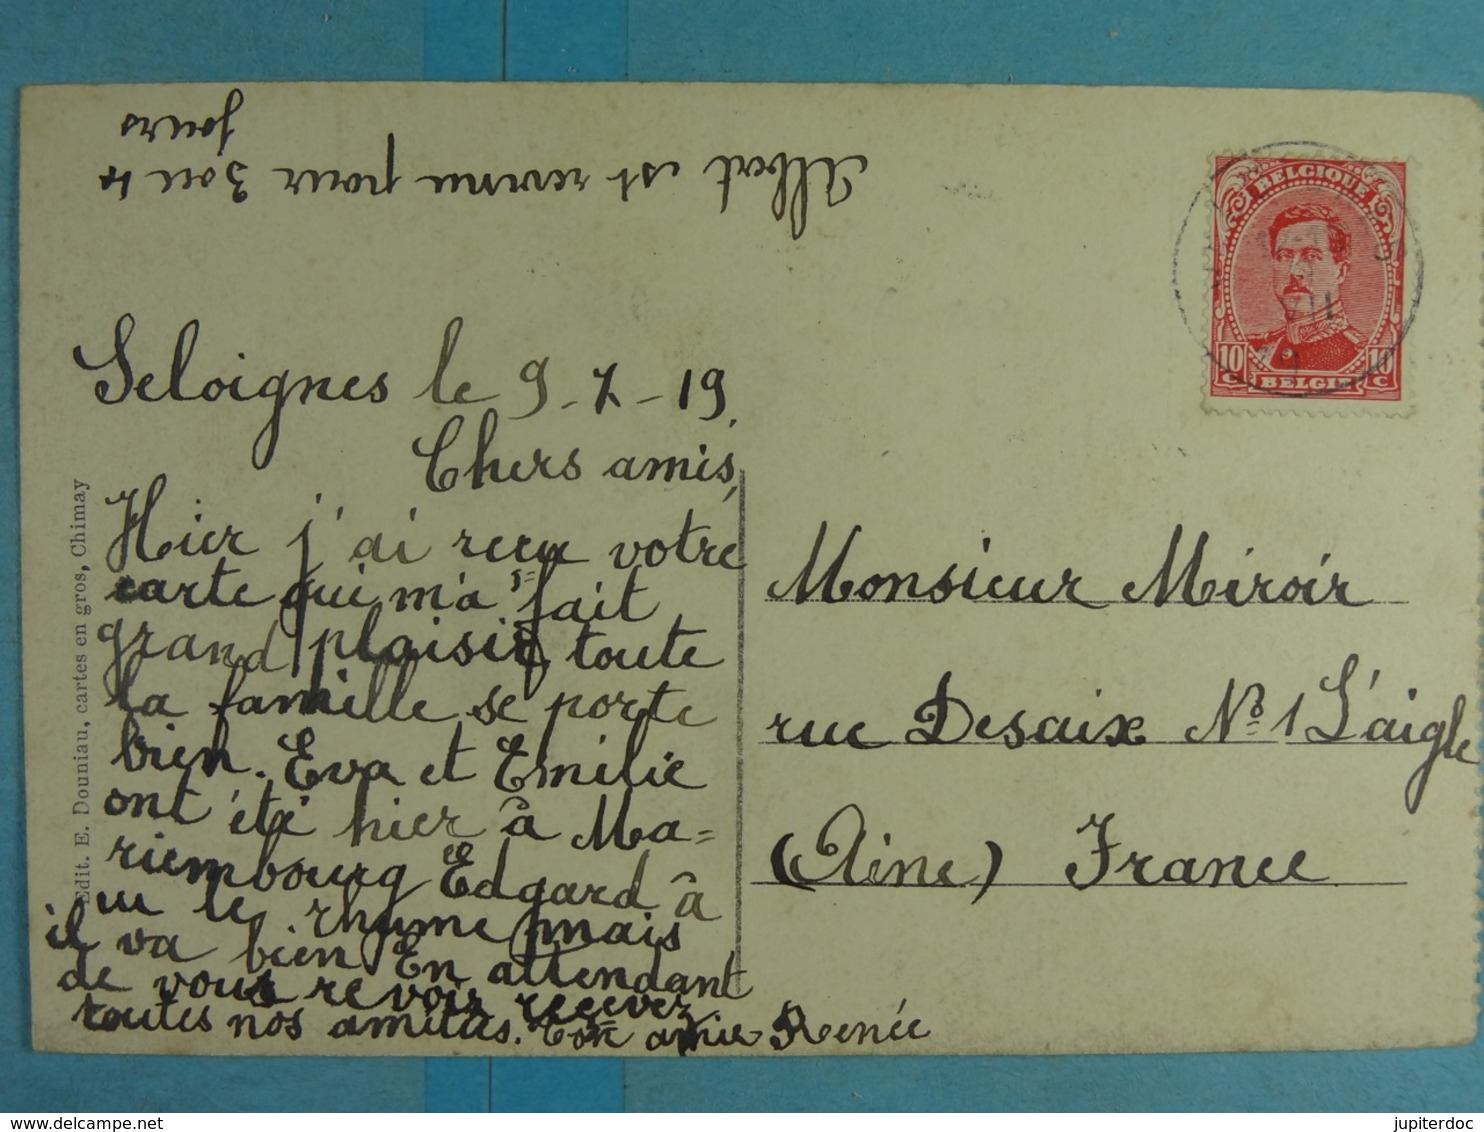 Albert est revenu pour 3 ou 4
jours
Seloignes le 9-7-19.
Chers amis,
Hier j'ai reçu votre
carte qui m'a fait
grand plaisir, toute
la famille se porte
bien. Eva et Emilie
ont été hier à Ma=
riembourg Edgard à
eu le rhume mais
il va bien En attendant
de vous revoir recevez
toutes nos amitiés. amie Renée
Edit. E. Douniau, cartes en gros, Chimay
BELGIQUE
10 C 10 C
BELGIË
VII
Monsieur Miroir
rue Desaix No 1 L'aigle
(Aine) France
jupiterdoc